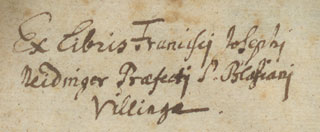 Ex Libris Francisci Josephi
Neidinger Præfecti S. Blasiani
Villingæ.